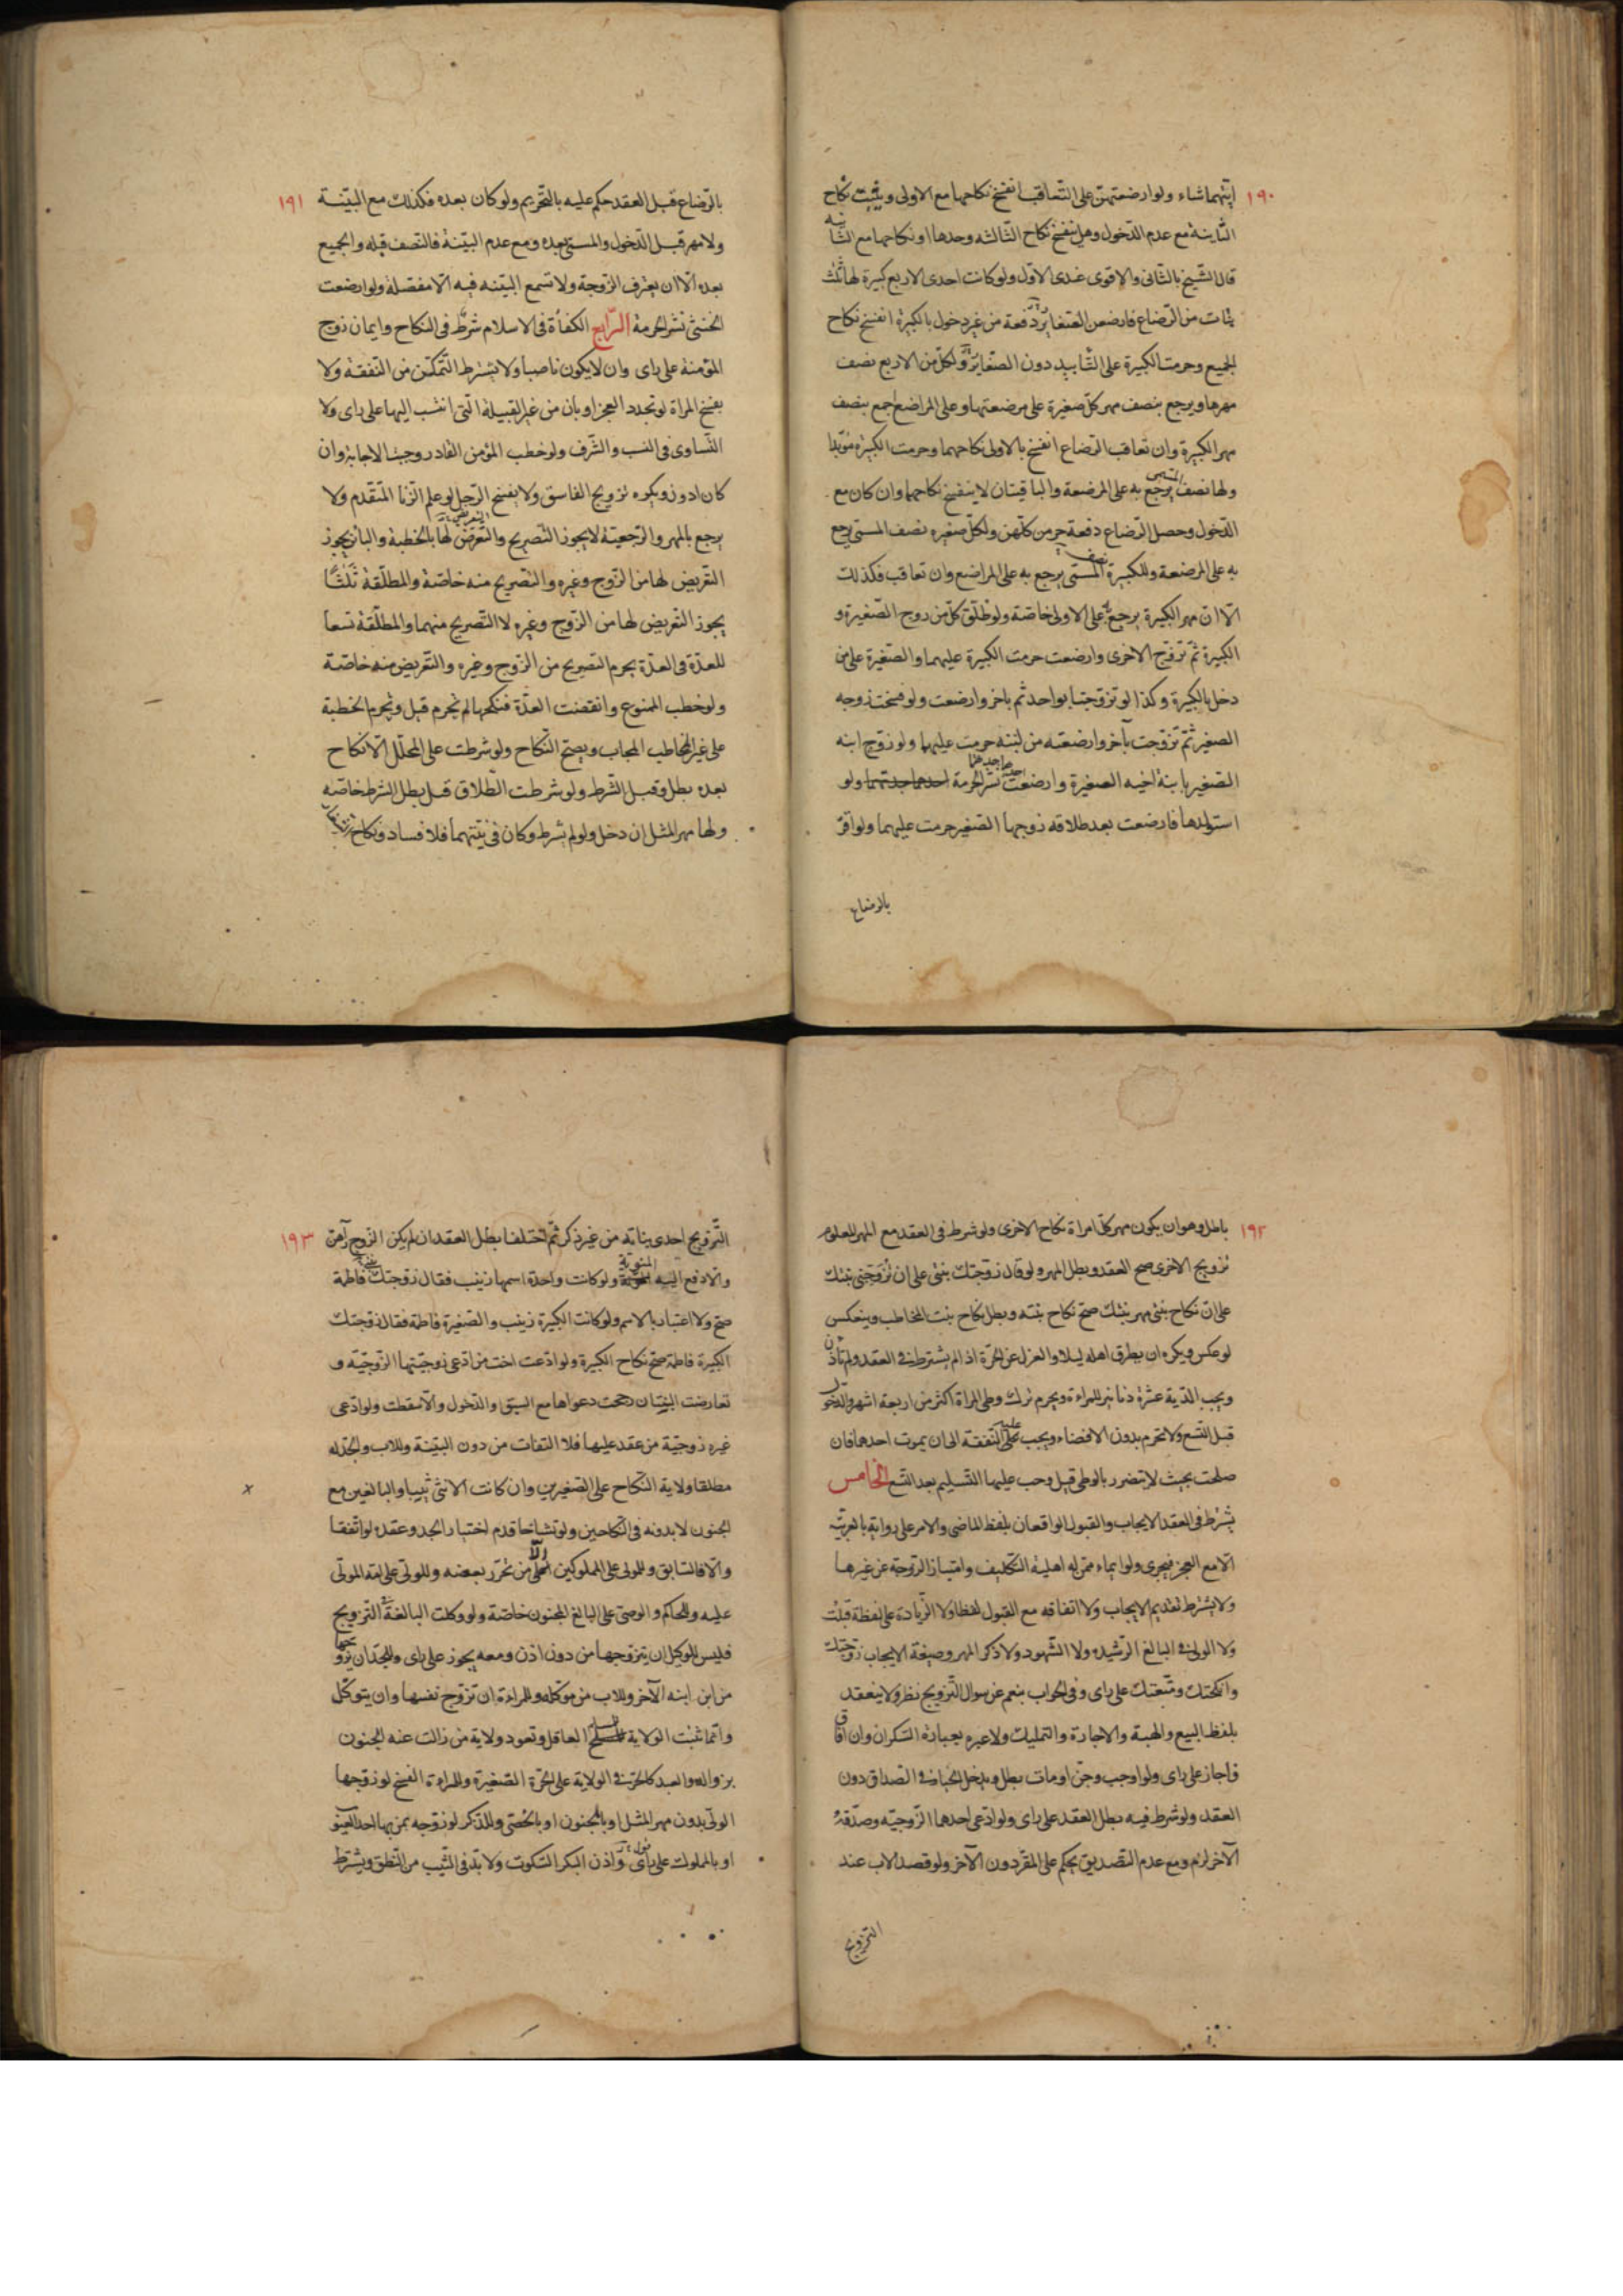 ١٩٠
ايتهما شاء ولو ارضعتهن على التعاقب انفسخ نكاحها مع الاولى ويثبت نكاح
الثانية مع عدم الدخول وهل ينفسخ نكاح الثالثه وحدها او نكاحها مع الثانيه
قال الشيخ بالثانى والاقوى عندى الاول ولو كانت احدى الاربع كبيرة لها ثلث
بنات من الرضاع فارضعن الصغاير دفعة من غير دخول بالكبيرة انفسخ نكاح
الجميع وحرمت الكبيرة على التابيد دون الصغاير ولكل من الاربع نصف
مهرها ويرجع بنصف مهر كل صغيرة على مرضعتها وعلى المراضع اجمع بنصف
مهر الكبيرة وان تعاقب الرضاع انفسخ بالاولى نكاحهما وحرمت الكبيرة مؤبدا
ولها نصف المسمى يرجع به على المرضعة والباقيتان لا ينفسخ نكاحها وان كان مع
الدخول وحصل الرضاع دفعة حرمن كلهن ولكل صغيره نصف المسمى يرجع
به على المرضعة وللكبيرة المسمى يرجع به على المراضع وان تعاقب فكذلك
الا ان مهر الكبيرة يرجع به على الاولى خاصة ولو طلق كل من زوج الصغيرة و
الكبيرة ثم تزوج الاخرى وارضعت حرمت الكبيرة عليهما والصغيرة على من
دخل بالكبيرة وكذا لو تزوجتا بواحد ثم باخر وارضعت ولو فسخت زوجه
الصغير ثم تزوجت بآخر وارضعته من لبنه حرمت عليهما ولو زوج ابنه
الصغير بابنة اخيه الصغيرة وارضعت جدتهما احدهما نشر الحرمة ولو
استولدها فارضعت بعد طلاقه زوجها الصغير حرمت عليهما ولو اقر
بالرضاع
١٩١
بالرضاع قبل العقد حكم عليه بالتحريم ولو كان بعده فكذلك مع البينة
ولا مهر قبل الدخول والمسمى بعده ومع عدم البينة فالنصف قبله والجميع
بعده الا ان يعترف الزوجة ولا تسمع البينه فيه الا مفصلة ولو ارضعت
الخنثى نشر الحرمة الرابع الكفأة فى الاسلام شرط فى النكاح وايمان زوج
المؤمنة على راى وان لا يكون ناصبا ولا يشترط التمكن من النفقة ولا
يفسخ المراة لو تجدد العجز او بان من غير القبيلة التى انتسب اليها على راى ولا
التساوى فى النسب والشرف ولو خطب المؤمن القادر وجبت الاجابة وان
كان ادون ويكره تزويج الفاسق ولا يفسخ الرجل لو علم الزنا المتقدم ولا
يرجع بالمهر والرجعية لا يجوز التصريح والتعريض لها بالخطبة والباين يجوز
التعريض لها من الزوج وغيره والتصريح منه خاصة والمطلقة ثلثا
يجوز التعريض لها من الزوج وغيره لا التصريح منهما والمطلقة تسعا
للعدة فى العدة يحرم التصريح من الزوج وغيره والتعريض منه خاصة
ولو خطب الممنوع وانقضت العدة فنكحها لم تحرم قيل وتحرم الخطبة
على غير المخاطب المجاب ويصح النكاح ولو شرطت على المحلل الا نكاح
بعده بطل وقيل الشرط ولو شرطت الطلاق قيل بطل الشرط خاصه
ولها مهر المثل ان دخل ولو لم يشرط وكان فى نيتهما فلا فساد ونكاح الشغار
١٩٢
باطل وهو ان يكون مهر كل امراة نكاح الاخرى ولو شرط فى العقد مع المهر المعلوم
تزويج الاخرى صح العقد وبطل المهر ولو قال زوجتك بنتى على ان تزوجنى بنتك
على ان نكاح بنتى مهر بنتك صح نكاح بنته وبطل نكاح بنت المخاطب وينعكس
لو عكس ويكره ان يطرق اهله ليلا والعزل عن الحرة اذا لم يشترط فى العقد ولم تاذن
ويجب الدية عشرة دنانير للمراءة ويحرم ترك وطى المراة اكثر من اربعة اشهر والدخول
قبل التسع ولا تحرم بدون الافضاء ويجب عليه النفقة الى ان يموت احدهما فان
صلحت بحيث لا يتضرر بالوطى قيل وجب عليها التسليم بعد التسع الخامس
يشترط فى العقد الايجاب والقبول الواقعان بلفظ الماضى والامر على رواية بالعربيه
الا مع العجز فيجزى ولو ايماء ممن له اهلية التكليف وامتياز الزوجة عن غيرها
ولا يشترط تقديم الايجاب ولا اتفاقه مع القبول لفظا ولا الزيادة على لفظة قبلت
ولا الولى فى البالغ الرشيده ولا الشهود ولا ذكر المهر وصيغة الايجاب زوجتك
وانكحتك ومتعتك على راى وفى الجواب بنعم عن سوال التزويج نظر ولا ينعقد
بلفظ البيع والهبة والاجارة والتمليك ولا عبره بعبارة السكران وان افاق
فاجاز على راى ولو اوجب وجن او مات بطل ويدخل الخيار فى الصداق دون
العقد ولو شرط فيه بطل العقد على راى ولو ادعى احدهما الزوجيه وصدقه
الآخر لزم ومع عدم التصديق يحكم على المقر دون الآخر ولو قصد الاب عند
التزويج
١٩٣
التزويج احدى بناته من غير ذكر ثم اختلفا بطل العقد ان لم يكن الزوج رآهن
والا دفع اليه المنوية ولو كانت واحدة اسمها زينب فقال زوجتك بنتى فاطمة
صح ولا اعتبار بالاسم ولو كانت الكبيرة زينب والصغيرة فاطمة فقال زوجتك
الكبيرة فاطمة صح نكاح الكبيرة ولو ادعت اخت من ادعى زوجيتها الزوجيه و
تعارضت البينتان صحت دعواها مع السبق والدخول والا سقطت ولو ادعى
غيره زوجية من عقد عليها فلا التفات من دون البينة وللاب والجد له
مطلقا ولاية النكاح على الصغيرين وان كانت الانثى ثيبا والبالغين مع
الجنون لا بدونه فى النكاحين ولو تشاحا قدم اختيار الجد وعقده لو اتفقا
والا فالسابق وللمولى على المملوكين الا من تحرر بعضه وللولى على امة المولى
عليه وللحاكم والوصى على البالغ المجنون خاصة ولو وكلت البالغة فى التزويج
فليس للوكيل ان يتزوجها من دون اذن ومعه يجوز على راى وللجد ان يزوجها
من ابن ابنه الآخر وللاب من موكله وللمراءة ان تزوج نفسها وان يتوكل
وانما تثبت الولاية للمسلم العاقل وتعود ولاية من زالت عنه الجنون
بزواله والعبد كالحر فى الولاية على الحرة الصغيرة وللمراءة الفسخ لو زوجها
الولى بدون مهر المثل او بالمجنون او بالخصى وللذكر لو زوجه بمن بها احد العيوب
او بالمملوك على راى واذن البكر السكوت ولا بد فى الثيب من النطق ويشترط